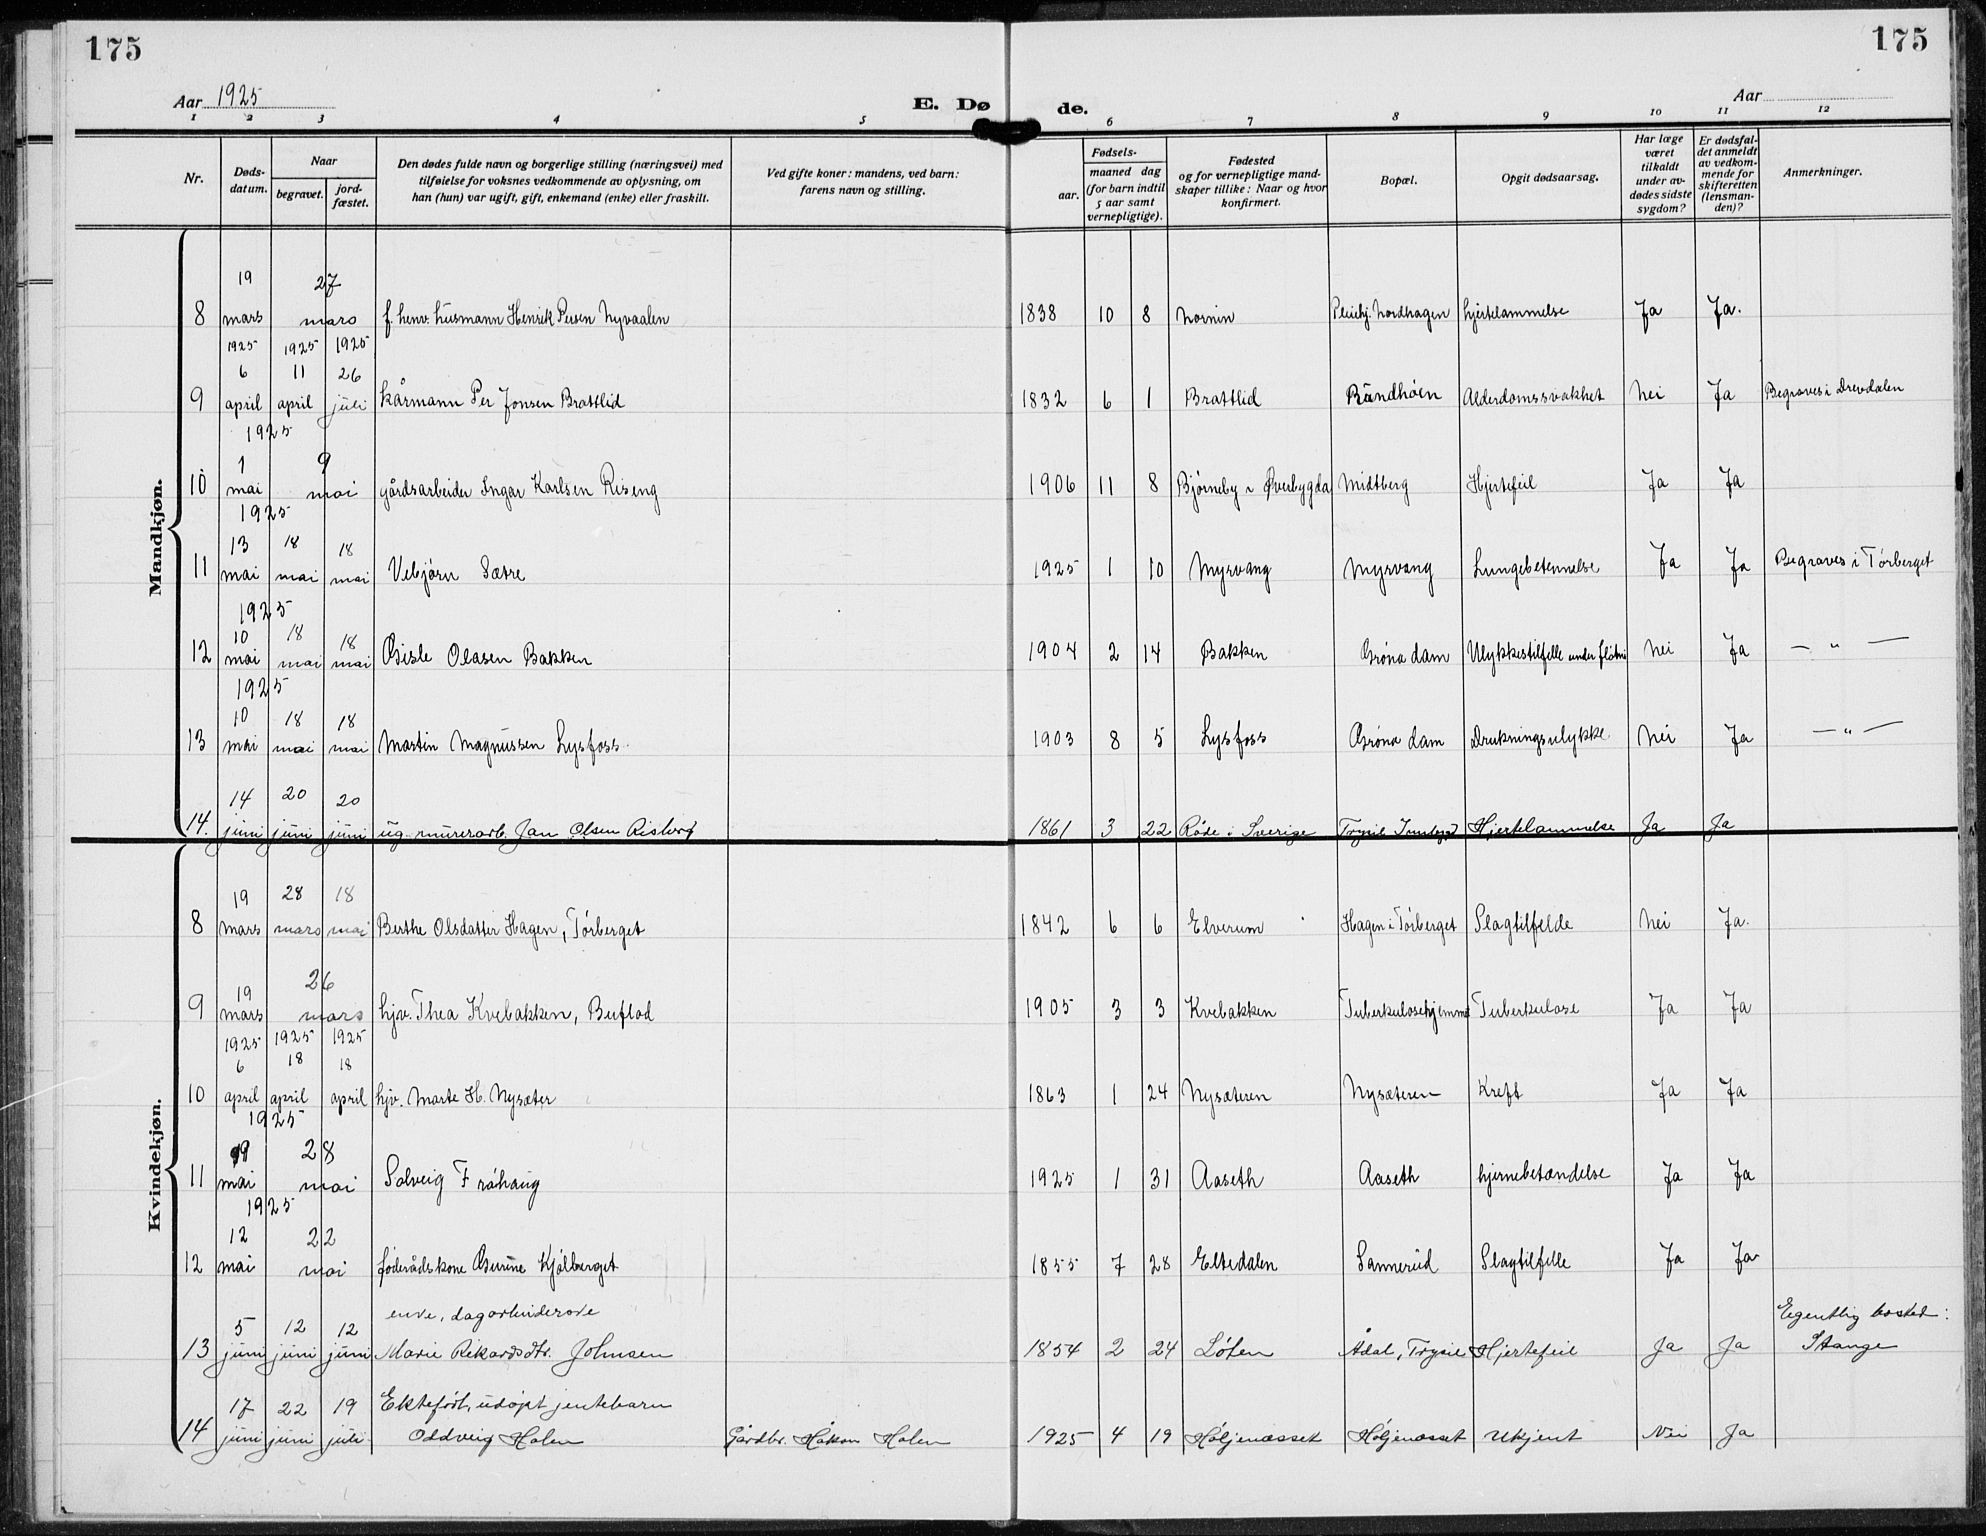 175
175
Aar 1925
E. Dø de.
Aar
1 2 3 4 5 6 7 8 9 10 11 12
Nr.
Døds-
datum.
Naar
begravet.
jord-
fæstet.
Den dødes fulde navn og borgerlige stilling (næringsvei) med
tilføielse for voksnes vedkommende av oplysning, om
han (hun) var ugift, gift, enkemand (enke) eller fraskilt.
Ved gifte koner: mandens, ved barn:
farens navn og stilling.
Fødsels-
aar.
maaned dag
(for barn indtil
5 aar samt
vernepligtige).
Fødested
og for vernepligtige mand-
skaper tillike: Naar og hvor
konfirmert.
Bopæl.
Opgit dødsaarsag.
Har læge
været
tilkaldt
under av-
dødes sidste
sygdom?
Er dødsfal-
det anmeldt
av vedkom-
mende for
skifteretten
(lensman-
den)?
Anmerkninger.
Mandkjøn.
19 27
8 mars mars f. henv. husmann Henrik Persen Nyvaalen 1838 10 8 Nornin Pleiehj. Nordhagen hjertelammelse Ja Ja.
1925 1925 1925
6 11 26
9 april april juli kårmann Per Jonsen Brattlid 1832 6 1 Brattlid Rundhöen Alderdomssvakhet Nei Ja Begraves i Drevdalen
1925
1 9
10 mai mai gårdsarbeider Ingar Karlsen Riseng 1906 11 8 Bjørneby i Øverbygda Midtberg Hjertefeil Ja Ja
1925
13 18 18
11 mai mai mai Vebjørn Sætre 1925 1 10 Myrvang Myrvang Lungebetennelse Ja Ja Begraves i Tørberget
1925
10 18 18
12 mai mai mai Gisle Olasen Bakken 1904 2 14 Bakken Gröna dam Ulykkestilfelle under fløtni Nei Ja — " —
1925
10 18 18
13 mai mai mai Martin Magnussen Lysfoss 1903 8 5 Lysfoss Gröna dam Drukningsulykke Nei Ja — " —
14 20 20
14. juni juni juni ug. murerarb. Jan Olsen Risberg 1861 3 22 Röde i Sverige Trysil Innbygd Hjertelammelse Ja Ja
Kvindekjøn.
19 28 18
8 mars mars mai Berthe Olsdatter Hagen, Törberget 1842 6 6 Elverum Hagen i Törberget Slagtilfelde Nei Ja.
19 26
9 mars mars hjv. Thea Kvebakken, Buflod 1905 3 3 Kvebakken Tuberkulosehjemmet Tuberkulose Ja Ja
1925 1925 1925
6 18 18
10 april april april hjv. Marte H. Nysæter 1863 1 24 Nysæteren Nysæteren Kreft Ja Ja
1925
19 28
11 mai mai Solveig Fróhaug 1925 1 31 Aaseth Aaseth hjernebetændelse Ja Ja
1925
12 22
12 mai mai föderådskone Gurine Kjölberget 1855 7 28 Eltedalen Sannerud Slagtilfelle Ja Ja
enke, dagarbeiderske Eigentlig bosted:
5 12 12
13 juni juni juni Marie Rikardsdtr. Johnsen 1854 2 24 Löten Ådal, Trysil Hjertefeil Ja Ja Stange
17 22 19 Ektefödt, udöpt jentebarn
14 juni juni juli Oddveig Holen Gårdbr. Håkon Holen 1925 4 19 Höljenæsset Höljenæsset Ukjent Nei Ja